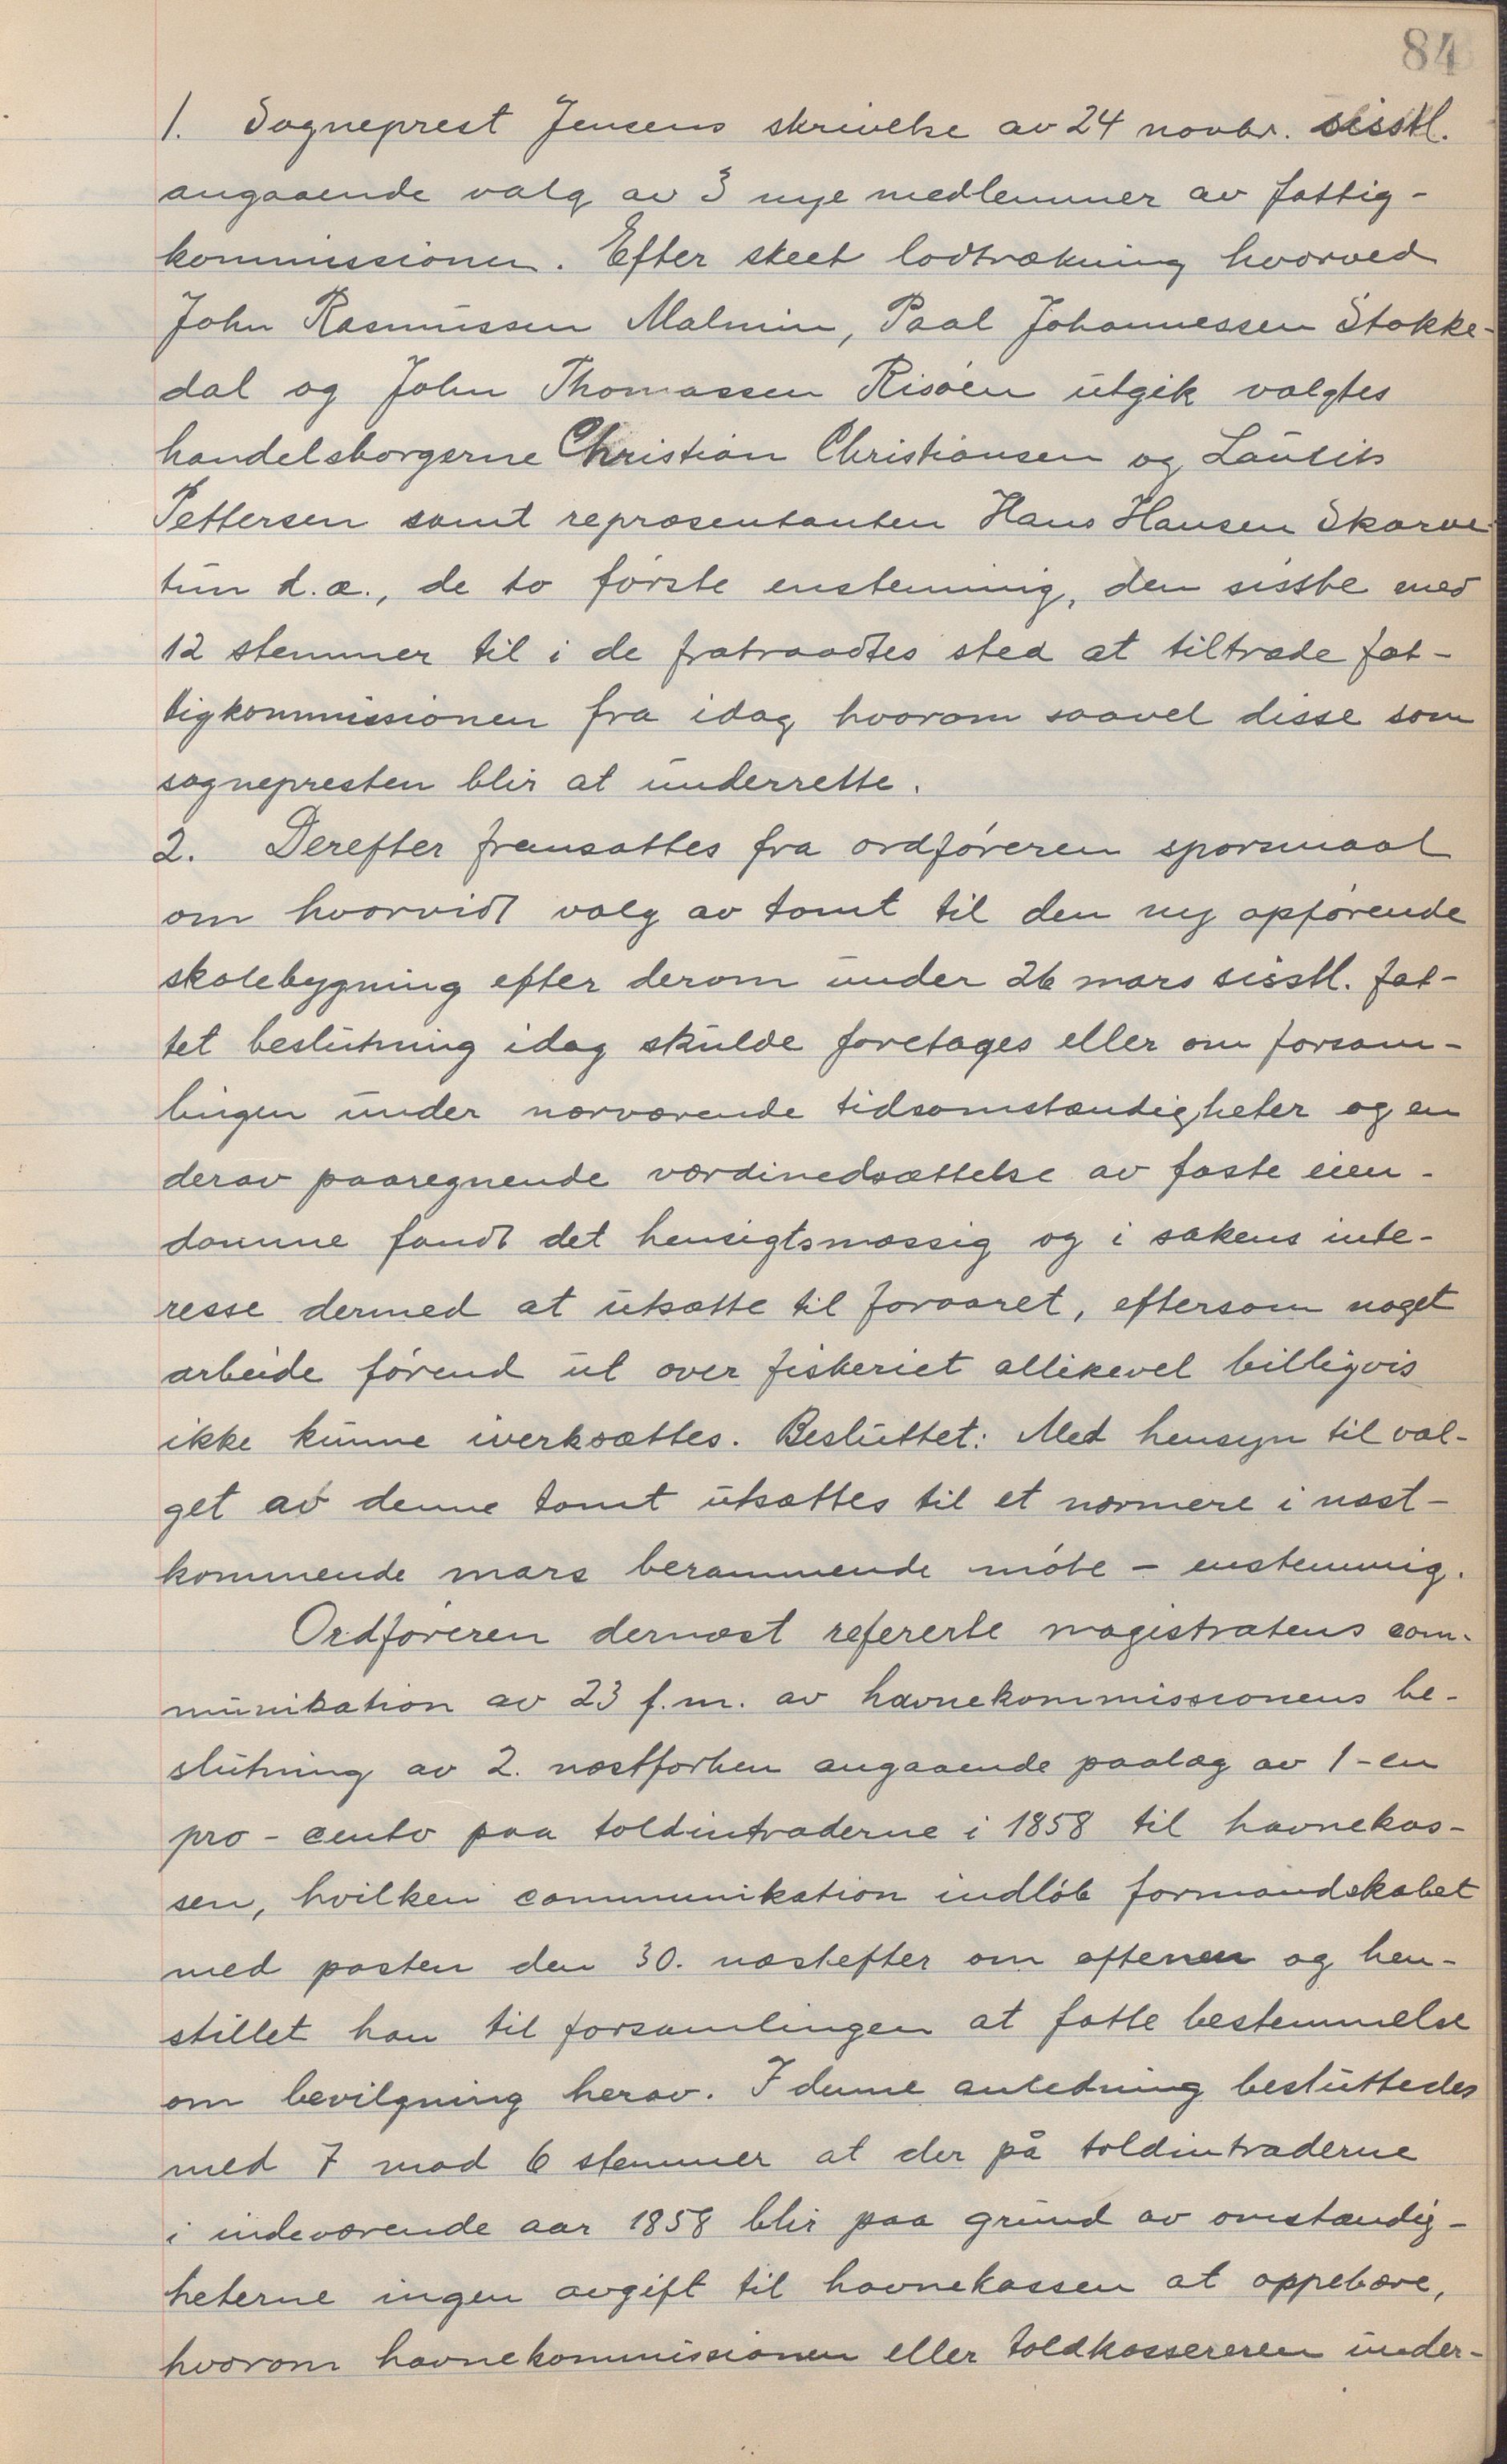 84
1. Sogneprest Jensens skrivelse av 24 novbr. sisstl.
angaaende valg av 3 nye medlemmer av fattig-
kommissionen. Efter skeet lodtrækning hvorved
John Rasmussen Malmin, Paal Johannessen Stokke-
dal og John Thomassen Risøen utgik valgtes
handelsborgerne Christian Christiansen og Lauritz
Pettersen samt repræsentanten Hans Hansen Skarve-
tun d.æ., de to første enstemmig, den sisste med
12 stemmer til i de fratraadtes sted at tiltræde fat-
tigkommissionen fra idag hvorom saavel disse som
sognepresten blir at underrette.
2. Derefter fremsattes fra ordføreren spørsmaal
om hvorvidt valg av tomt til den ny opførende
skolebygning efter derom under 26 mars sisstl. fat-
tet beslutning idag skulde foretages eller om forsam-
lingen under nærværende tidsomstændigheter og en
derav paaregnende værdinedsættelse av faste eien-
domme fandt det hensigtsmæssig og i sakens inte-
resse dermed at utsætte til foraaret, eftersom noget
arbeide førend ut over fiskeriet allikevel billigvis
ikke kunne iverksættes. Besluttet: Med hensyn til val-
get av denne tomt utsættes til et nærmere i næst-
kommende mars berammende møte - enstemmig.
Ordføreren dernæst refererte magistratens com-
munikation av 23 f.m. av havnekommissionens be-
slutning av 2. næstforhen angaaende paalæg av 1-en
pro-cento paa toldintraderne i 1858 til havnekas-
sen, hvilken communikation indløb formandskabet
med posten den 30. næstefter om aftenen og hen-
stillet han til forsamlingen at fatte bestemmelse
om bevilgning herav. I denne anledning besluttedes
med 7 mod 6 stemmer at der på toldintraderne
i indeværende aar 1858 blir paa grund av omstændig-
heterne ingen avgift til havnekassen at oppebære,
hvorom havnekommissionen eller toldkassereren under-